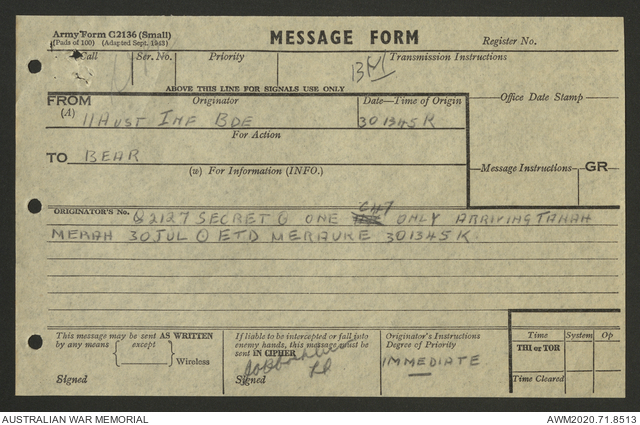 Army Form C2136 (Small)
(Pads of 100) (Adapted Sept. 1943)
MESSAGE FORM
Register No.
Call
Ser. No.
Priority
Transmission Instructions
ABOVE THIS LINE FOR SIGNALS USE ONLY
FROM
(A)
Originator
Date—Time of Origin
Office Date Stamp
11 AUST INF BDE
301345K
For Action
TO
BEAR
(w) For Information (INFO.)
Message Instructions
GR
ORIGINATOR'S No.
Q2127 SECRET ⊙ ONE C47 ONLY ARRIVING TANAH
MERAH 30 JUL ⊙ ETD MERAUKE 301345K
This message may be sent AS WRITTEN
by any means
except
Wireless
Signed
If liable to be intercepted or fall into
enemy hands, this message must be
sent IN CIPHER
Signed
Originator's Instructions
Degree of Priority
IMMEDIATE
Time
System
Op
THI or TOR
Time Cleared
AUSTRALIAN WAR MEMORIAL
AWM2020.71.8513